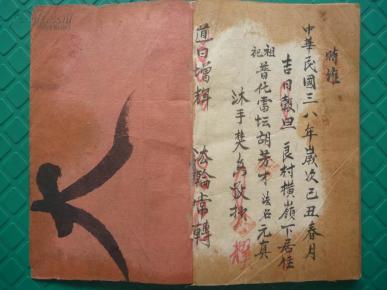 時維
中華民國三八年歲次己丑春月
吉日穀旦 良村橫嶺下居住
祖祀普化雷坛胡芳才法名元真
沐手焚香敬抄
道日增輝 法輪常轉